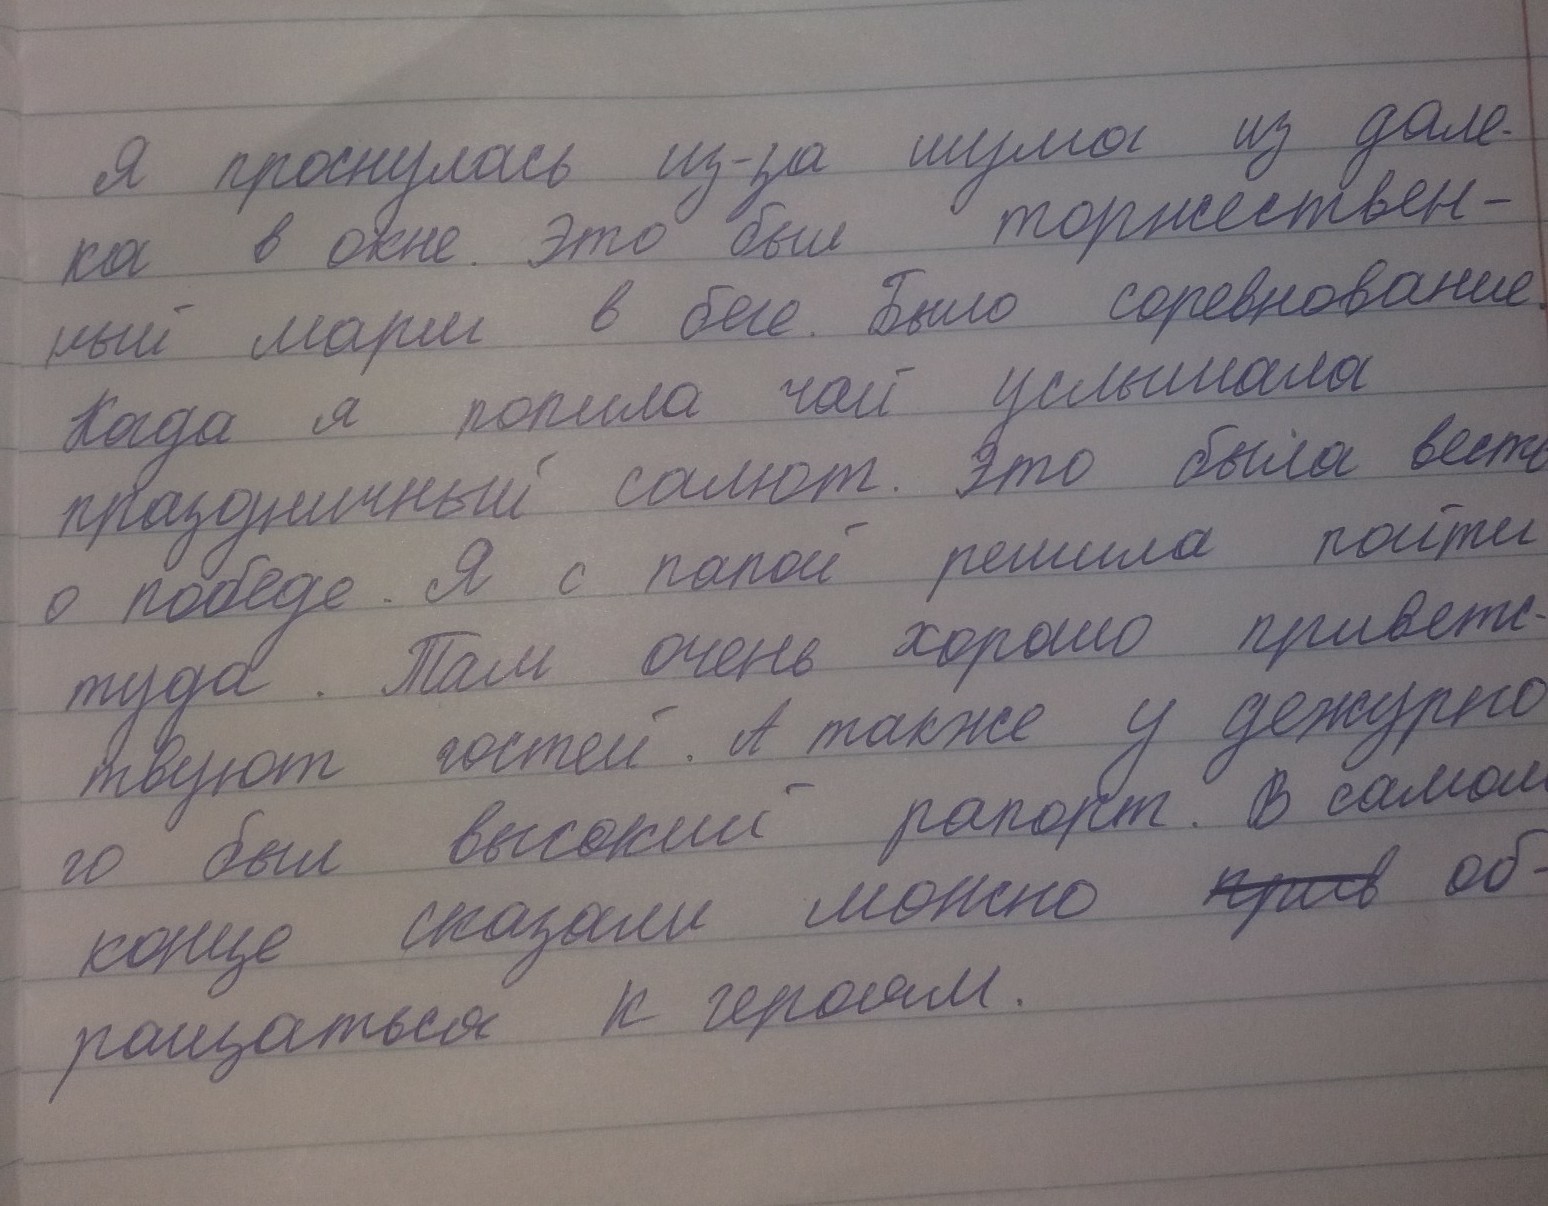 Я проснулась из-за шума из дале-
ка в окне. Это был торжествен-
ный марш в беге. Было соревнование.
Кагда я попила чай услышала
праздничный салют. Это была весть
о победе. Я с папой решила пойти
туда. Там очень хорошо приветс-
твуют гостей. А также у дежурно
го был высокий рапорт. В самом
конце сказали можно об-
ращаться к героям.